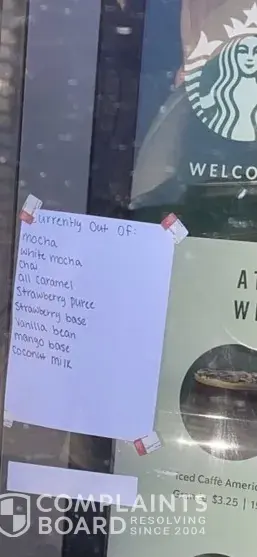 WELCO
Currently Out OF:
mocha
white mocha
chai
all caramel
Strawberry puree
Strawberry base
Vanilla bean
mango base
coconut milk
AT
WE
Iced Caffè Americ
$3.25 | 1
COMPLAINTS
BOARD RESOLVING
SINCE 2004